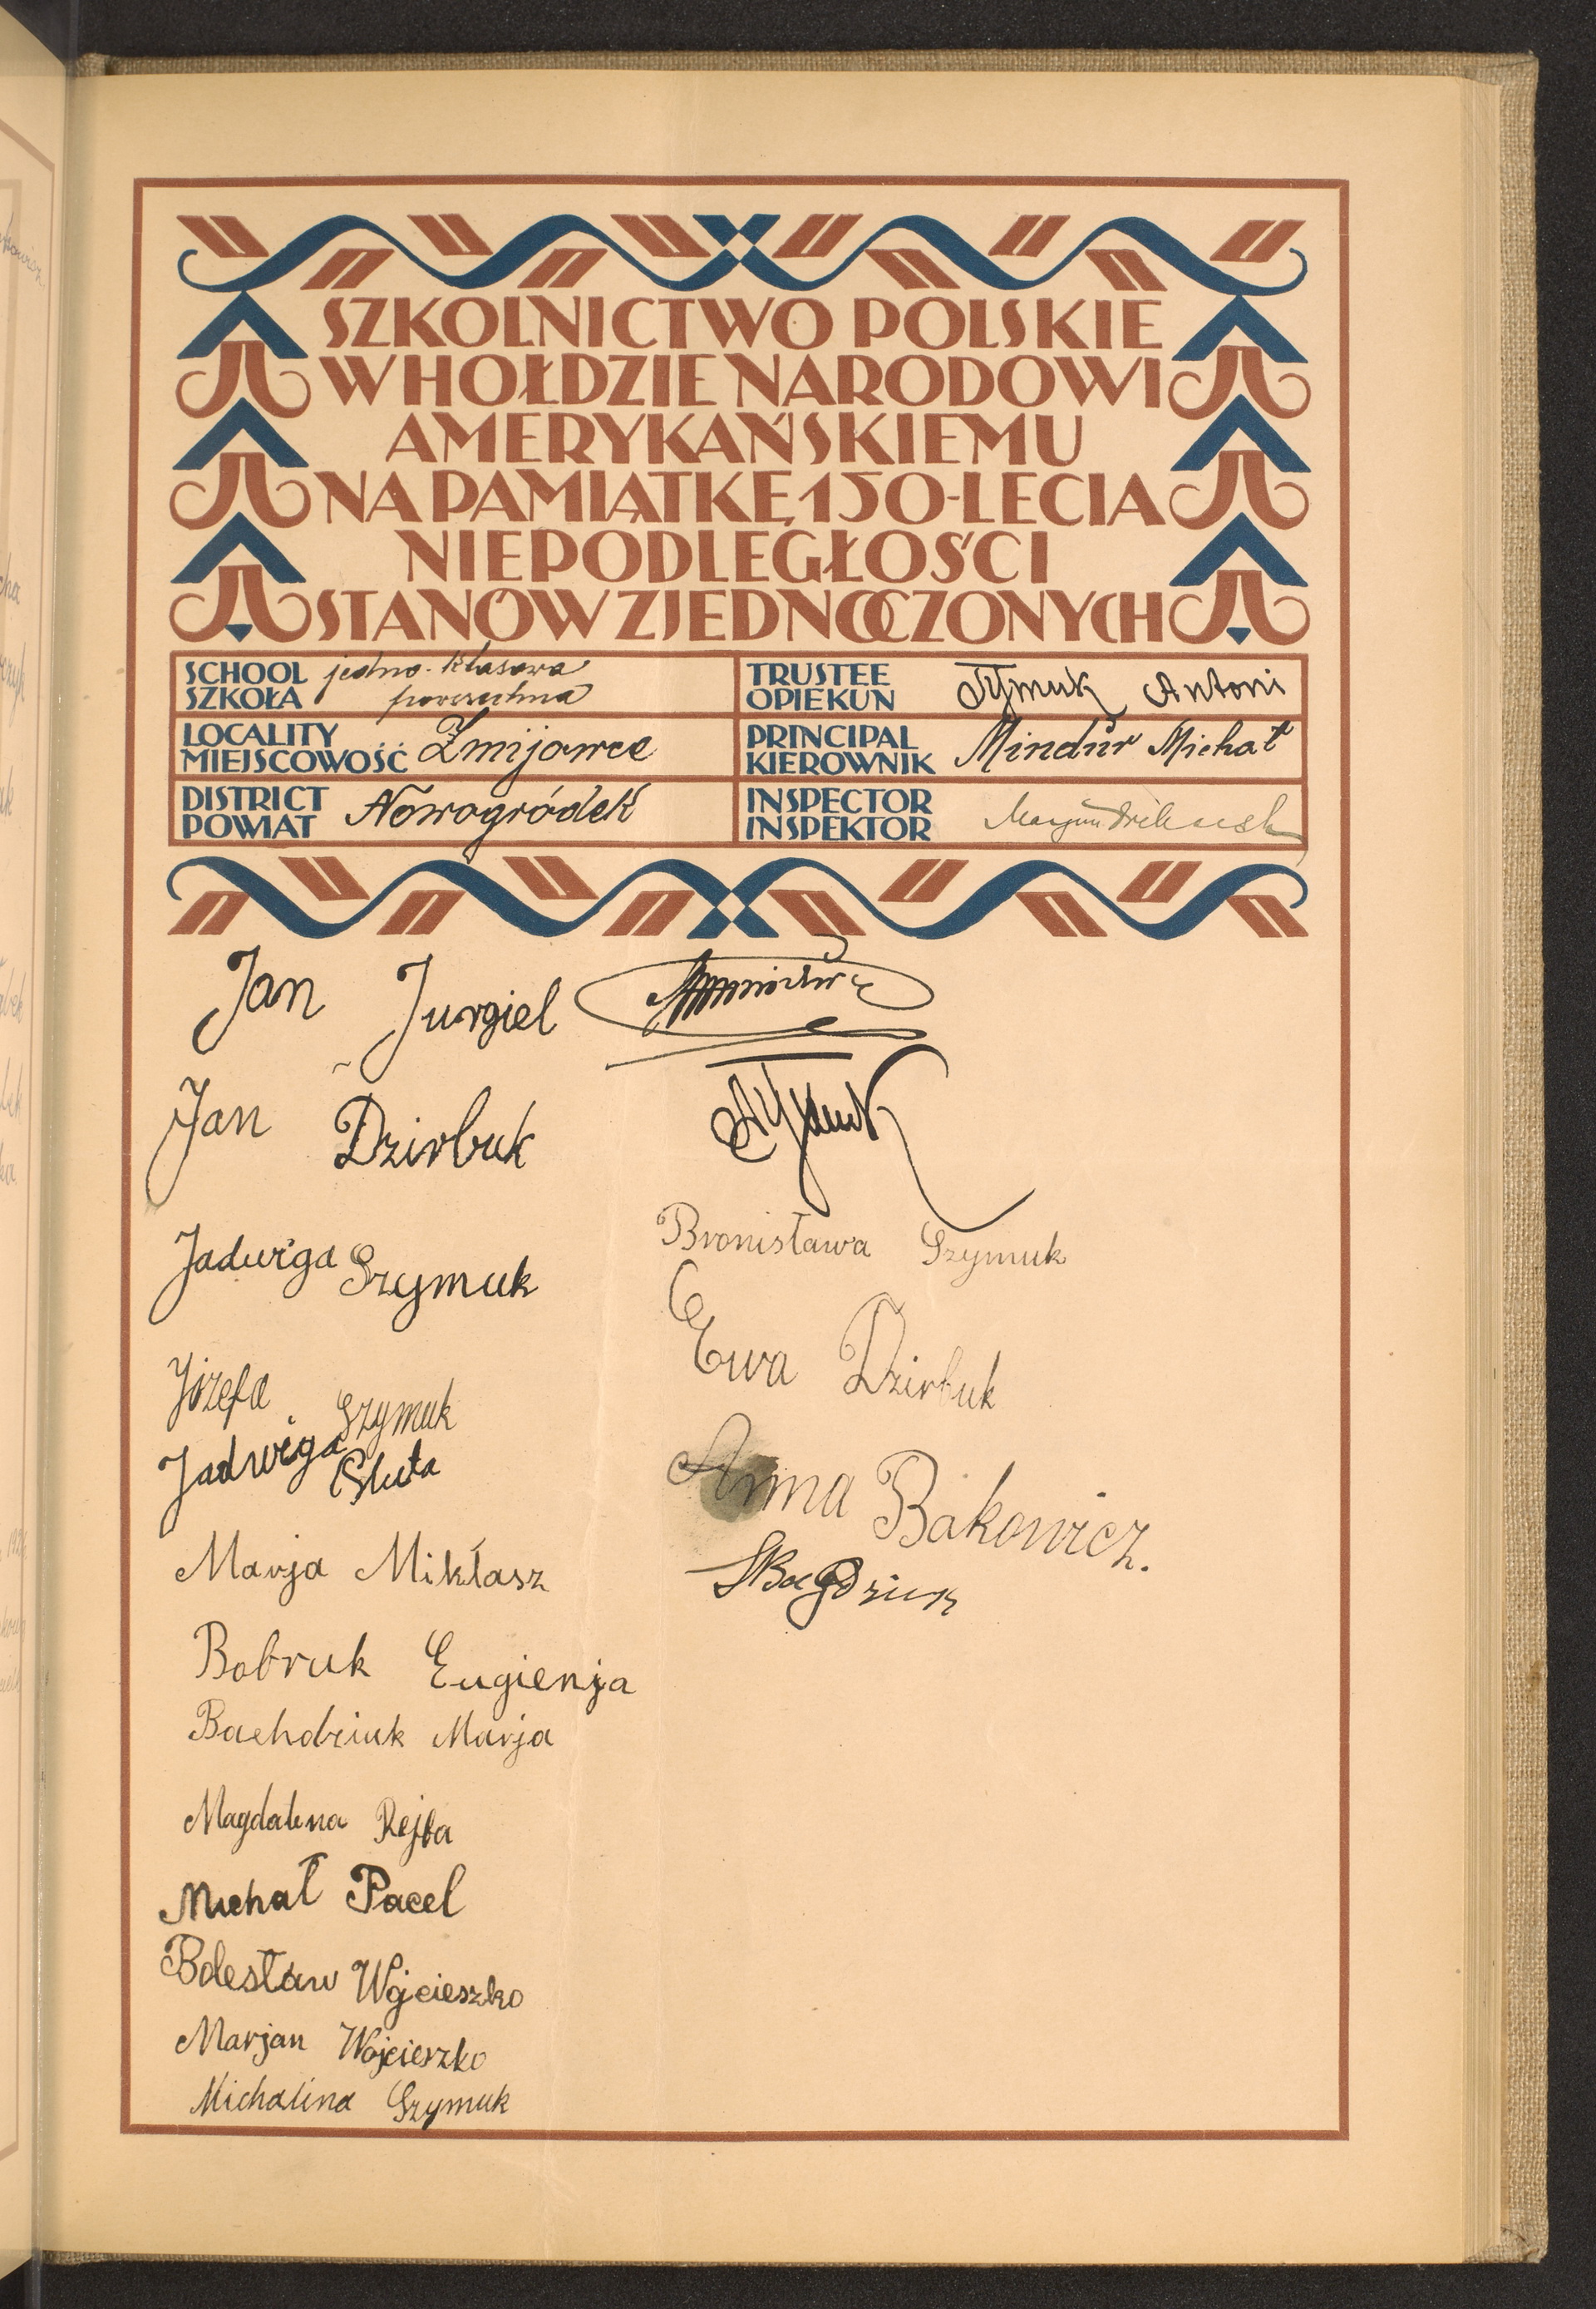 SZKOLNICTWO POLSKIE
W HOŁDZIE NARODOWI
AMERYKAŃSKIEMU
NA PAMIĄTKĘ 150-LECIA
NIEPODLEGŁOŚCI
STANÓW ZJEDNOCZONYCH
SCHOOL
SZKOŁA
jedno-klasowa
powszechna
TRUSTEE
OPIEKUN
Szymuk Antoni
LOCALITY
MIEJSCOWOŚĆ
Żmijowce
PRINCIPAL
KIEROWNIK
Mindur Michał
DISTRICT
POWIAT
Nowogródek
INSPECTOR
INSPEKTOR
Jan Jurgiel
Jan Dzirbuk
Jadwiga Szymuk
Józefa Szymuk
Jadwiga Słuta
Marja Mikłasz
Bobruk Eugienja
Bachdziuk Marja
Magdalena Rejba
Michał Pacel
Bolesław Wojcieszko
Marjan Wojcieszko
Michalina Szymuk
Bronisława Szymuk
Ewa Dzirbuk
Anna Bakowicz.